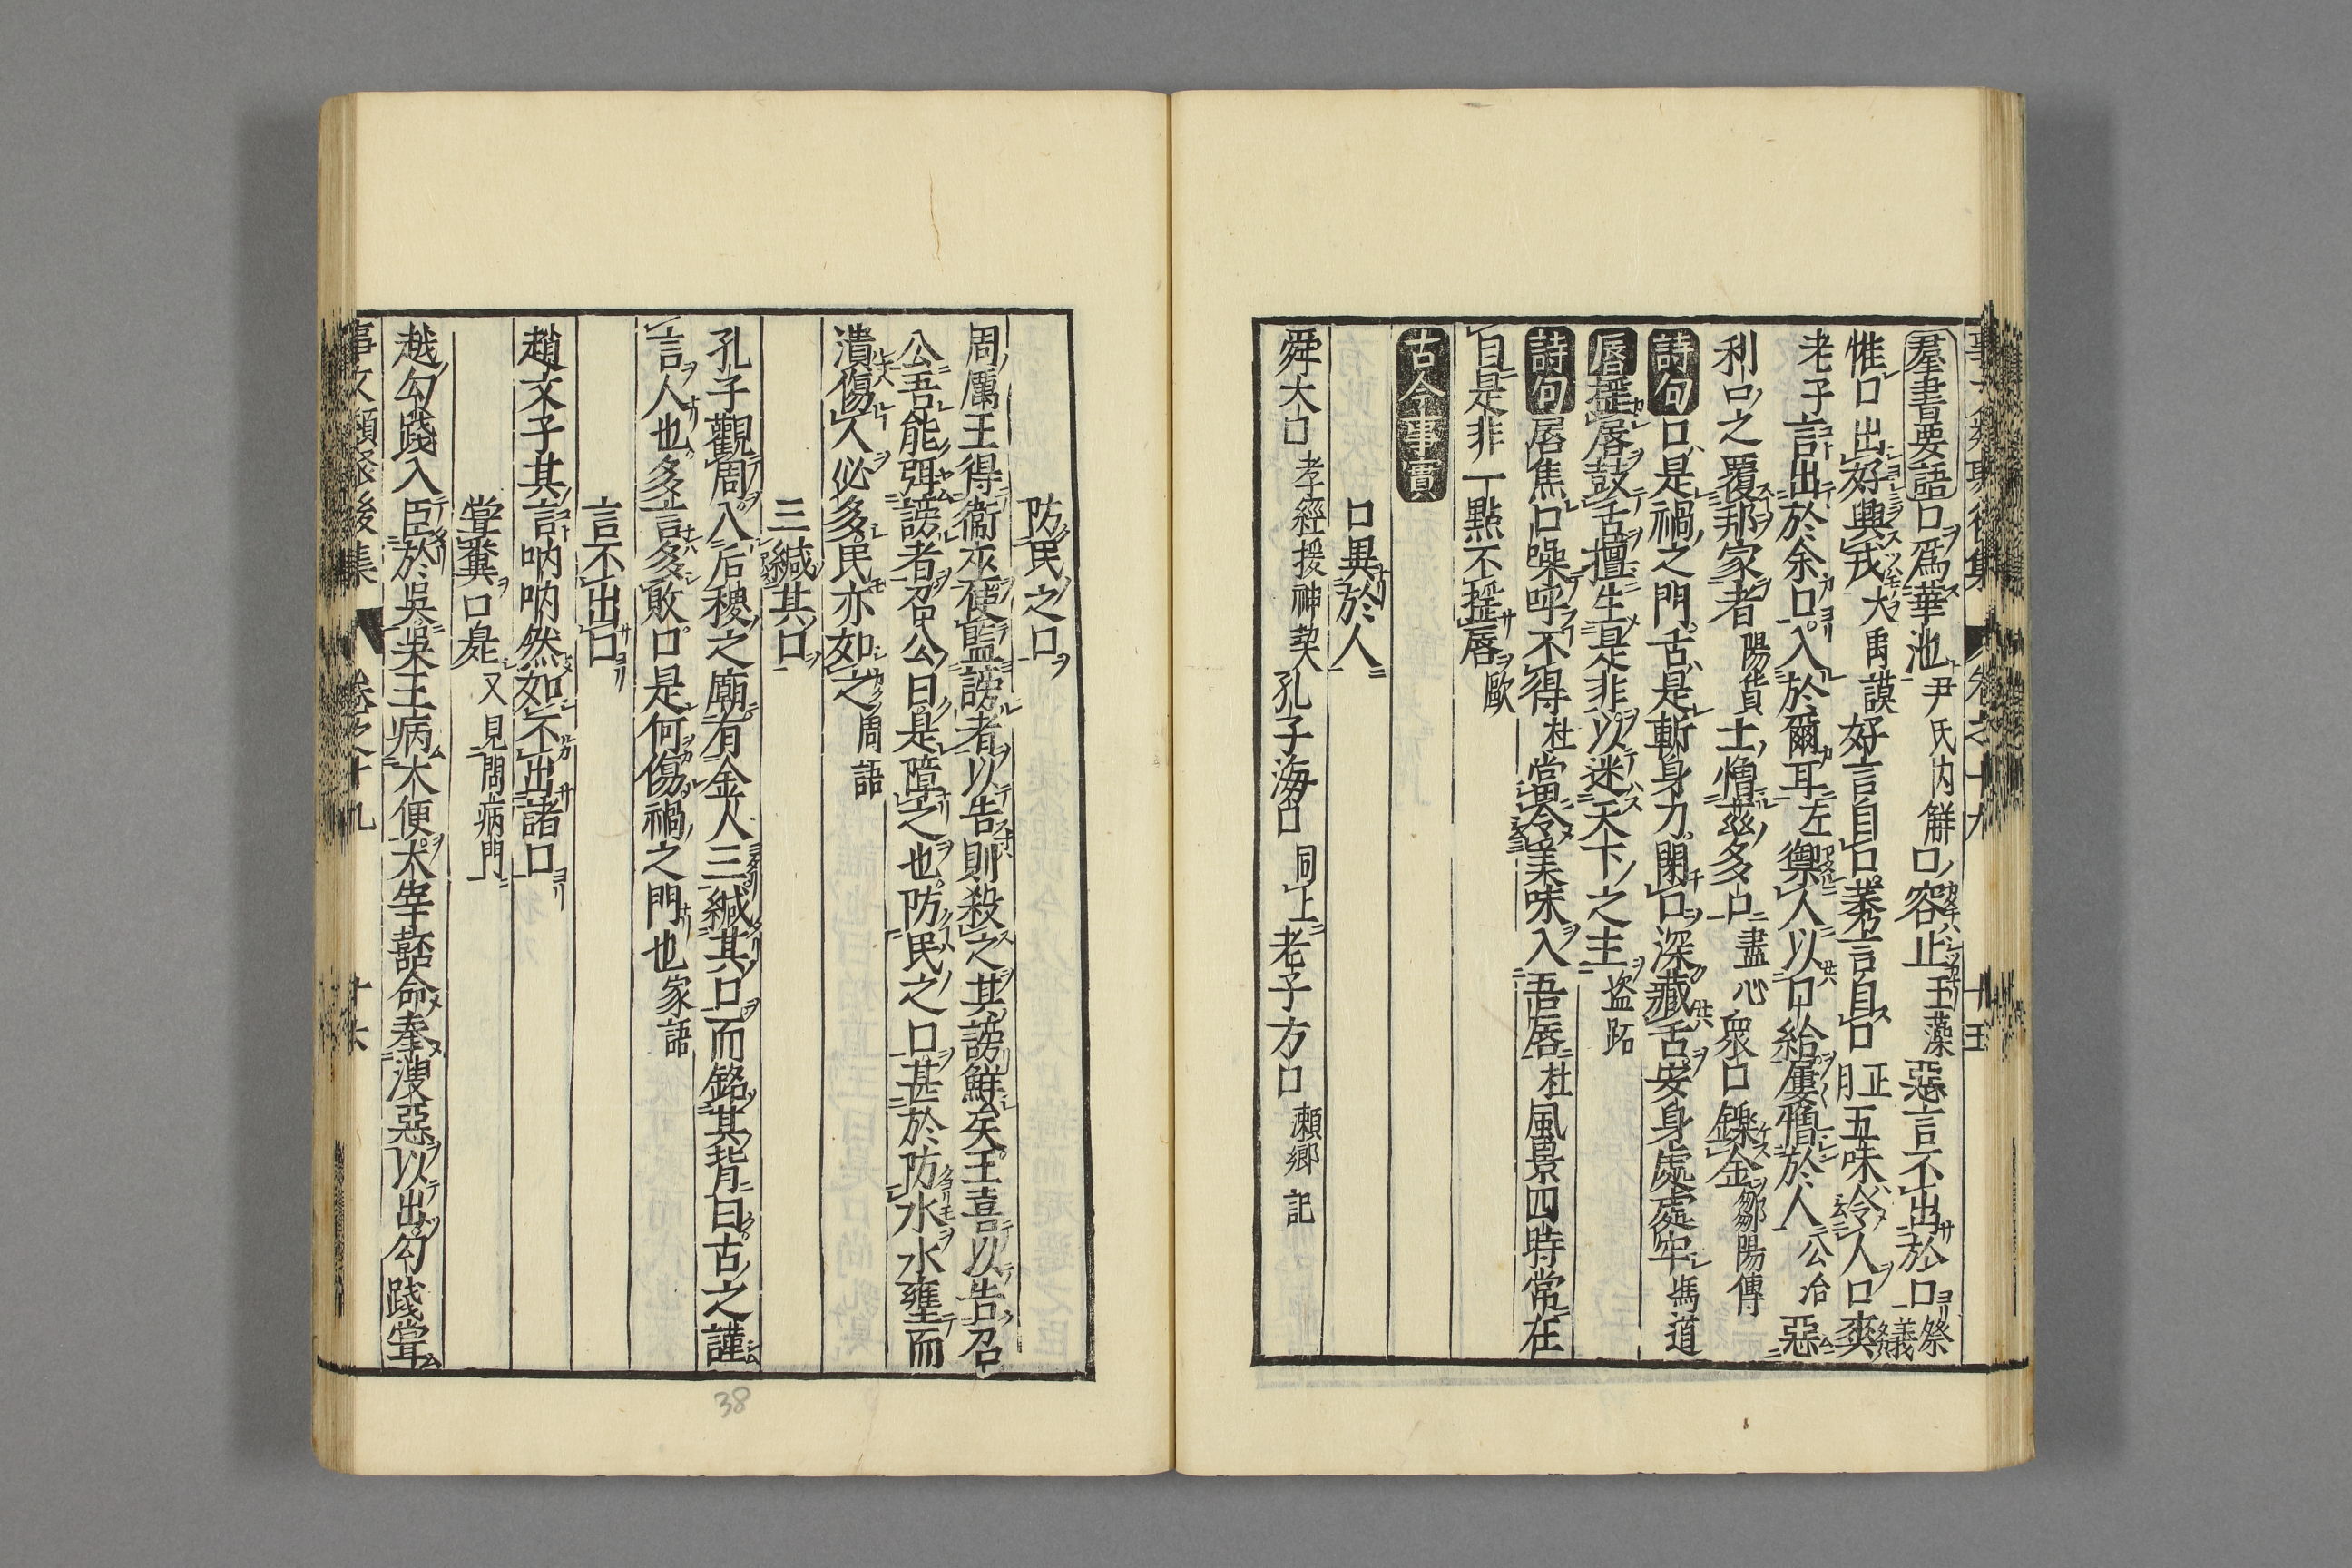 羣書要語口爲華池尹氏内解口容止玉藻惡言不出於口祭義
惟口出好興戎大禹謨好言自口莠言自口正月五味令人口爽
老子言出於余口入於爾耳左禦人以口給屢憎於人公冶惡
利口之覆邦家者陽貨士憎茲多口盡心衆口鑠金鄒陽傳
詩句口是禍之門舌是斬身刀閉口深藏舌安身處處牢馮道
唇揺唇鼓舌擅生是非以迷天下之主盗跖
詩句唇焦口噪呼不得杜嘗冷美味入吾唇杜風景四時常在
目是非一點不揺唇歐
古今事實
口異於人
舜大口孝經援神契孔子海口同上老子方口瀬郷記
防民之口
周厲王得衞巫使監謗者以告則殺之其謗鮮矣王喜以告召
公吾能弭謗者召公曰是障之也防民之口甚於防水水壅而
潰傷人必多民亦如之周語
三緘其口
孔子觀周入后稷之廟有金人三緘其口而銘其背曰古之謹
言人也多言多敗口是何傷禍之門也家語
言不出口
趙文子其言吶吶然如不出諸口
甞糞口是又見問病門
越勾踐入臣於吳吳王病大便太宰嚭命奉溲惡以出勾踐甞
事文類聚後集 卷之十九 十六